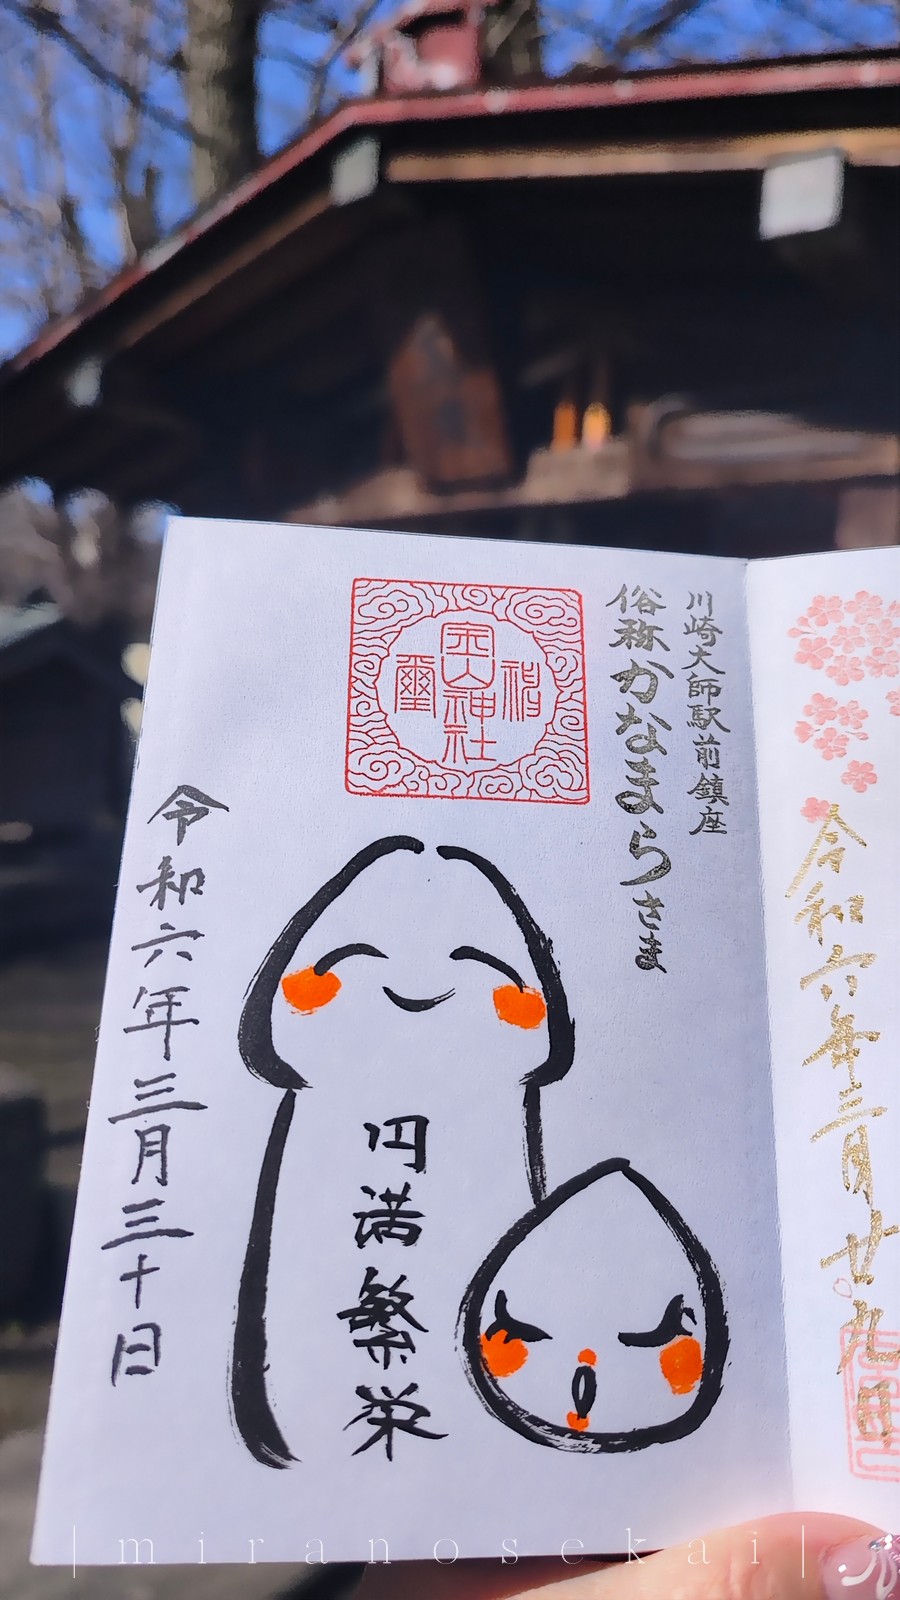 川崎大師駅前鎮座
俗称かなまらさま
金山神社
円満繁栄
令和六年三月三十日
令和六年三月廿九日
|miranosekai|